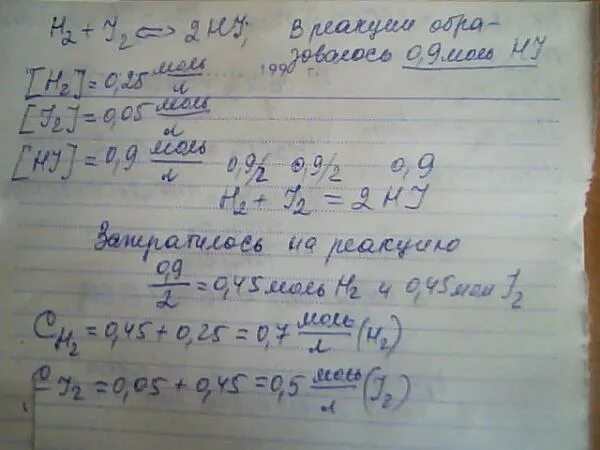 H₂ + J₂ ⇌ 2HJ; В реакции обра-
зовалось 0,9 моль HJ
[H₂] = 0,25 моль/л 199 г.
[J₂] = 0,05 моль/л
[HJ] = 0,9 моль/л 0,9/2 0,9/2 0,9
H₂ + J₂ = 2HJ
Затратилось на реакцию
0,9/2 = 0,45 моль H₂ и 0,45 мол J₂
C H₂ = 0,45 + 0,25 = 0,7 моль/л (H₂)
C J₂ = 0,05 + 0,45 = 0,5 моль/л (J₂)